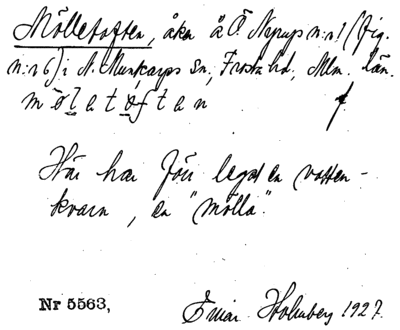 Mölletoften, åker å Ö. Nyrup n:r 1 (fig.
n:r 6) i N. Munkarps sn, Frosta hd, Mlm. län.
mölatoftan
Här har förr legat en vatten-
kvarn, en "mölla".
Nr 5563, Einar Holmberg 1927.